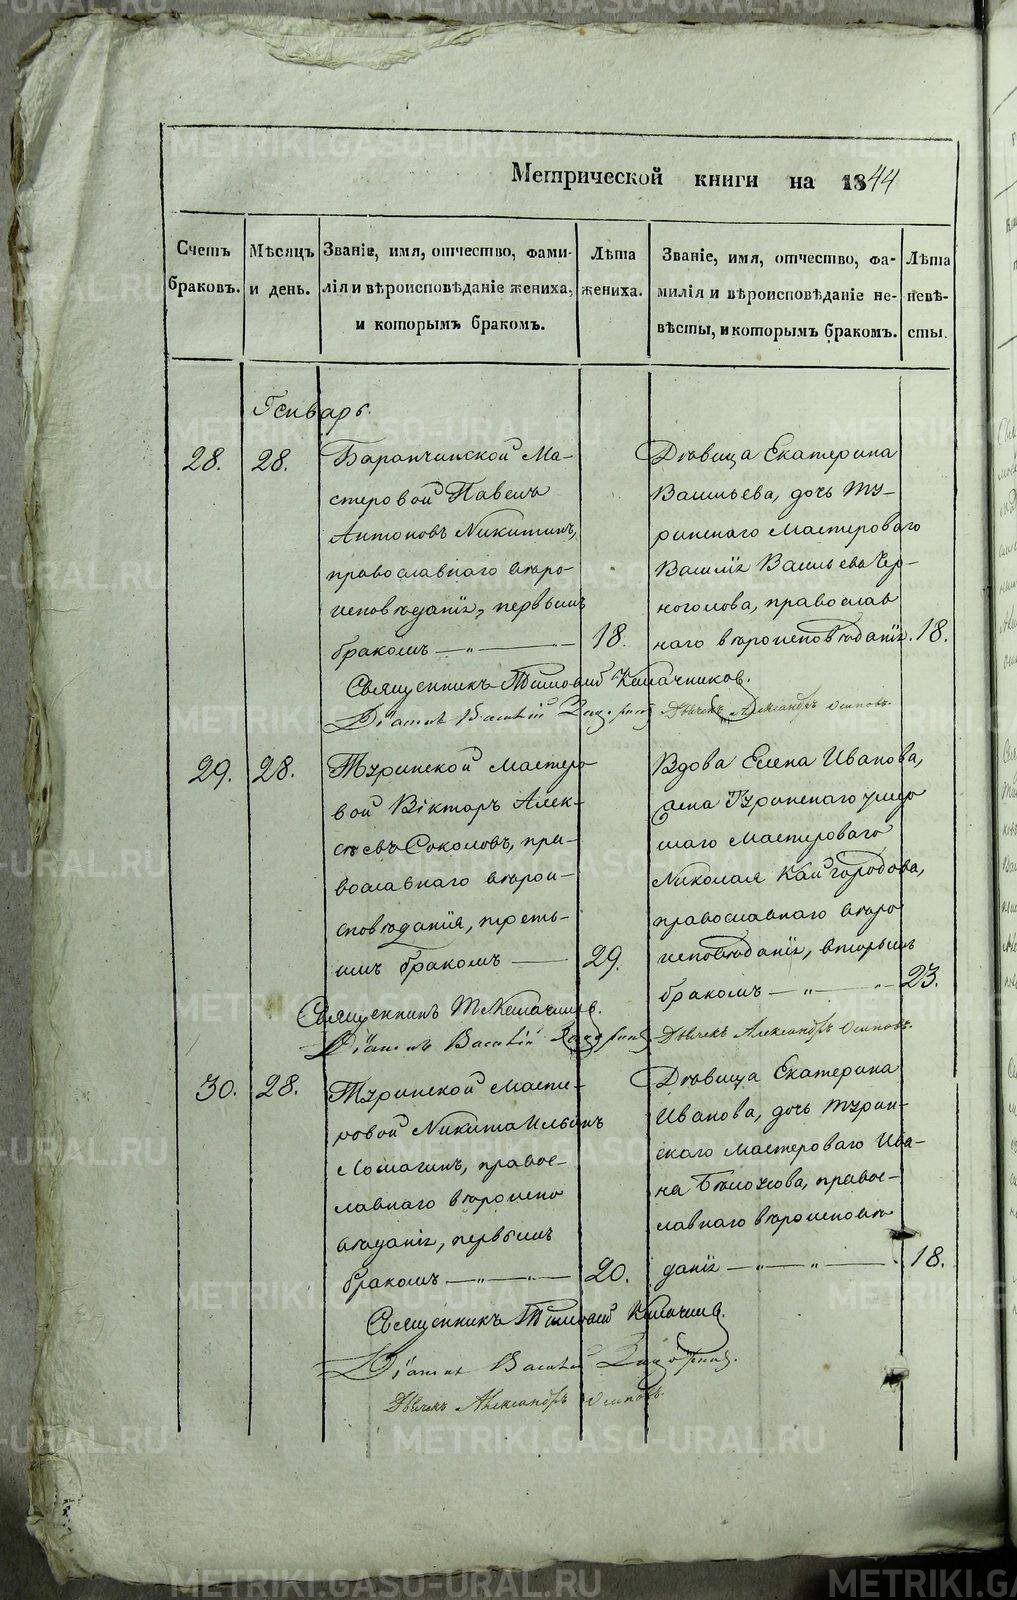 Метрической книги на 1844
Счетъ браковъ.
Мѣсяцъ и день.
Званіе, имя, отчество, фами-
лія и вѣроисповѣданіе жениха,
и которымъ бракомъ.
Лѣта жениха.
Званіе, имя, отчество, фа-
милія и вѣроисповѣданіе не-
вѣсты, и которымъ бракомъ.
Лѣта невѣ-
сты.
Генварь.
28.
28.
Баранчинской Ма-
стеровой Павелъ
Антоновъ Никитинъ,
православнаго вѣро
исповѣданія, первымъ
бракомъ
18.
Дѣвица Екатерина
Васильева, дочь Ту-
ринскаго Мастероваго
Василія Васильева Чер-
ноголова, православ
наго вѣроисповѣданія.
18.
Священникъ Тимофей
Діаконъ Василій
Дьячекъ Александръ Осиповъ.
29.
28.
Туринской Мастеро
вой Віктаръ Алек-
сѣевъ Соколовъ, пра-
вославнаго вѣрои-
сповѣданія, треть-
имъ бракомъ
29.
Вдова Елена Иванова,
жена Туринскаго умер
шаго Мастероваго
Николая Кайгородова,
православнаго вѣро
исповѣданія, вторымъ
бракомъ
23.
Священникъ Т
Діаконъ Василій
Дьячекъ Александръ Осиповъ.
30.
28.
Туринской Масте-
ровой Никита Ильинъ
Ломагинъ, правос-
лавнаго вѣроиспо
вѣданія, первымъ
бракомъ
20.
Дѣвица Екатерина
Иванова, дочь Турин-
скаго Мастероваго Ива-
на Бѣлоусова, правос-
лавнаго вѣроисповѣ
данія
18.
Священникъ Тимофей
Діаконъ Василій
Дьячекъ Александръ Осиповъ.
METRIKI.GASO-URAL.RU